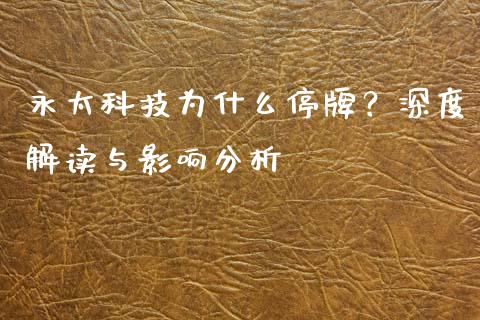 永太科技为什么停牌？深度
解读与影响分析